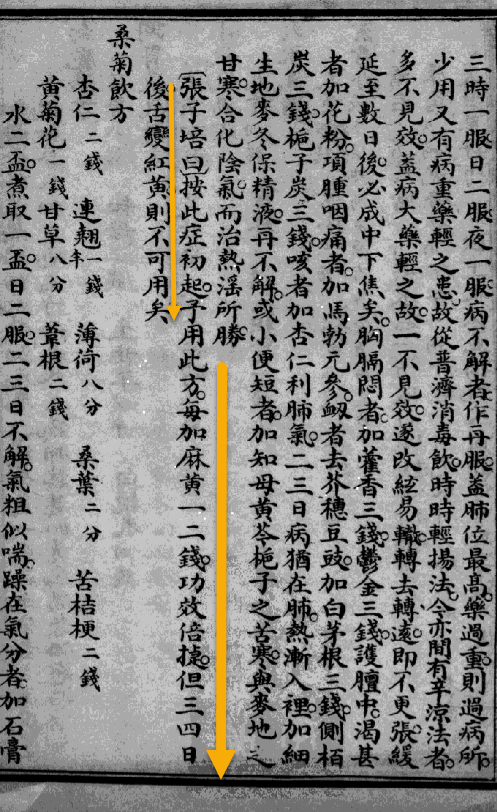 三時一服日二服夜一服病不解者作再服蓋肺位最高藥過重則過病所
少用又有病重藥輕之患故從普濟消毒飲時時輕揚法今亦間有辛涼法者
多不見效蓋病大藥輕之故一不見效遂改絃易轍轉去轉遠即不更張緩
延至數日後必成中下焦矣胸膈悶者加藿香三錢鬱金三錢護膻中渴甚
者加花粉項腫咽痛者加馬勃元參衂者去芥穗豆豉加白茅根三錢側柏
炭三錢梔子炭三錢咳者加杏仁利肺氣二三日病猶在肺熱漸入裡加細
生地麥冬保精液再不解或小便短者加知母黃芩梔子之苦寒與麥地之
甘寒合化陰氣而治熱淫所勝
張子培曰按此症初起予用此方毎加麻黃一二錢功效倍捷但三四日
後舌變紅黃則不可用矣
桑菊飲方
杏仁二錢 連翹一錢半 薄荷八分 桑葉二分 苦桔梗二錢
黃菊花一錢 甘草八分 葦根二錢
水二盃煮取一盃日二服二三日不解氣粗似喘躁在氣分者加石膏